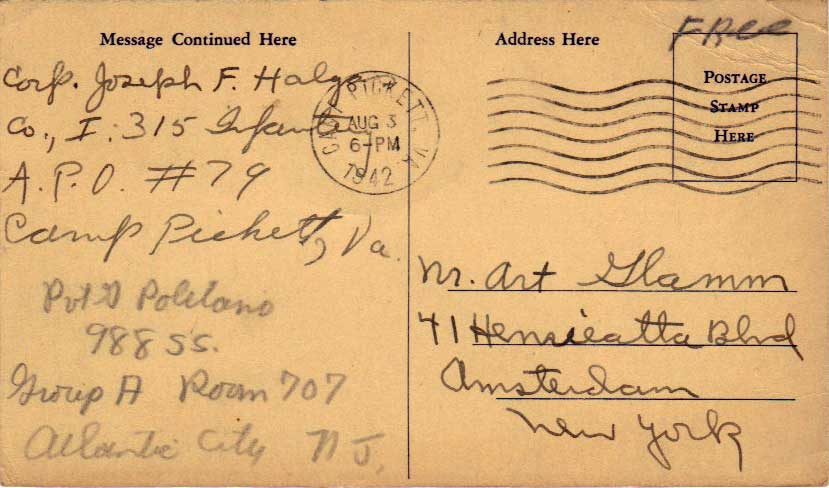 Message Continued Here
Corp. Joseph F. Halga
Co., I. 315 Infantry
A.P.O. #79
Camp Pickett, Va.
Pvt G Politano
988 SS.
Group A Room 707
Atlantic City N J.
CAMP PICKETT, VA
AUG 3
6-PM
1942
Address Here
FREE
POSTAGE
STAMP
HERE
Mr. Art Glamm
41 Henrieatta Blvd
Amsterdam
New York